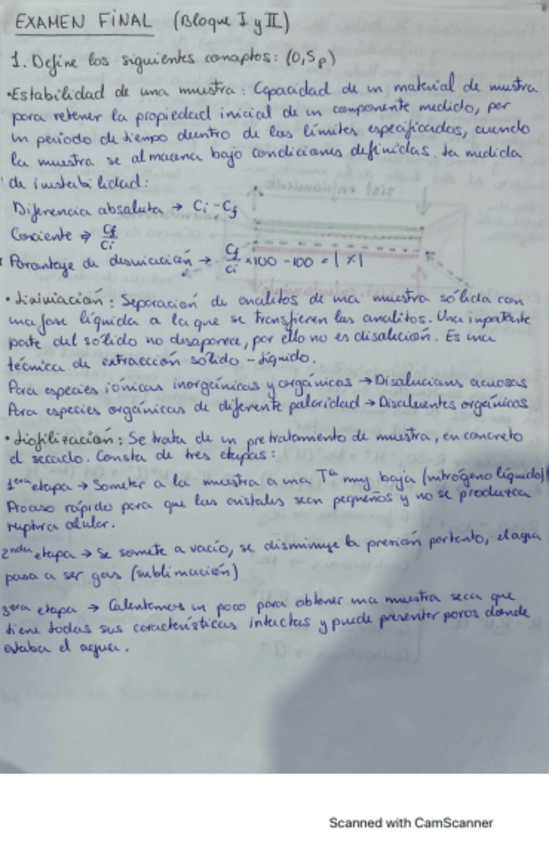 EXAMEN FINAL (Bloque I y II)
1. Define los siguientes conceptos: (0,5p)
•Estabilidad de una muestra: Capacidad de un material de muestra
para retener la propiedad inicial de un componente medido, por
un periodo de tiempo dentro de los límites especificados, cuando
la muestra se almacena bajo condiciones definidas. La medida
de inestabilidad:
Diferencia absoluta → Ci - Cf
Cociente → Cf/Ci
Porcentaje de desviación → Cf/Ci × 100 - 100 = | x |
• Lixiviación: Separación de analitos de una muestra sólida con
una fase líquida a la que se transfieren los analitos. Una importante
parte del sólido no desaparece, por ello no es disolución. Es una
técnica de extracción sólido - líquido.
Para especies iónicas inorgánicas y orgánicas → Disoluciones acuosas
Para especies orgánicas de diferente polaridad → Disolventes orgánicos
• Liofilización: Se trata de un pretratamiento de muestra, en concreto
el secado. Consta de tres etapas:
1era etapa → Someter a la muestra a una Tª muy baja (nitrógeno líquido)
Proceso rápido para que los cristales sean pequeños y no se produzca
ruptura celular.
2nda etapa → Se somete a vacío, se disminuye la presión por tanto, el agua
pasa a ser gas (sublimación)
3era etapa → Calentamos un poco para obtener una muestra seca que
tiene todas sus características intactas y puede presentar poros donde
estaba el agua.
Scanned with CamScanner